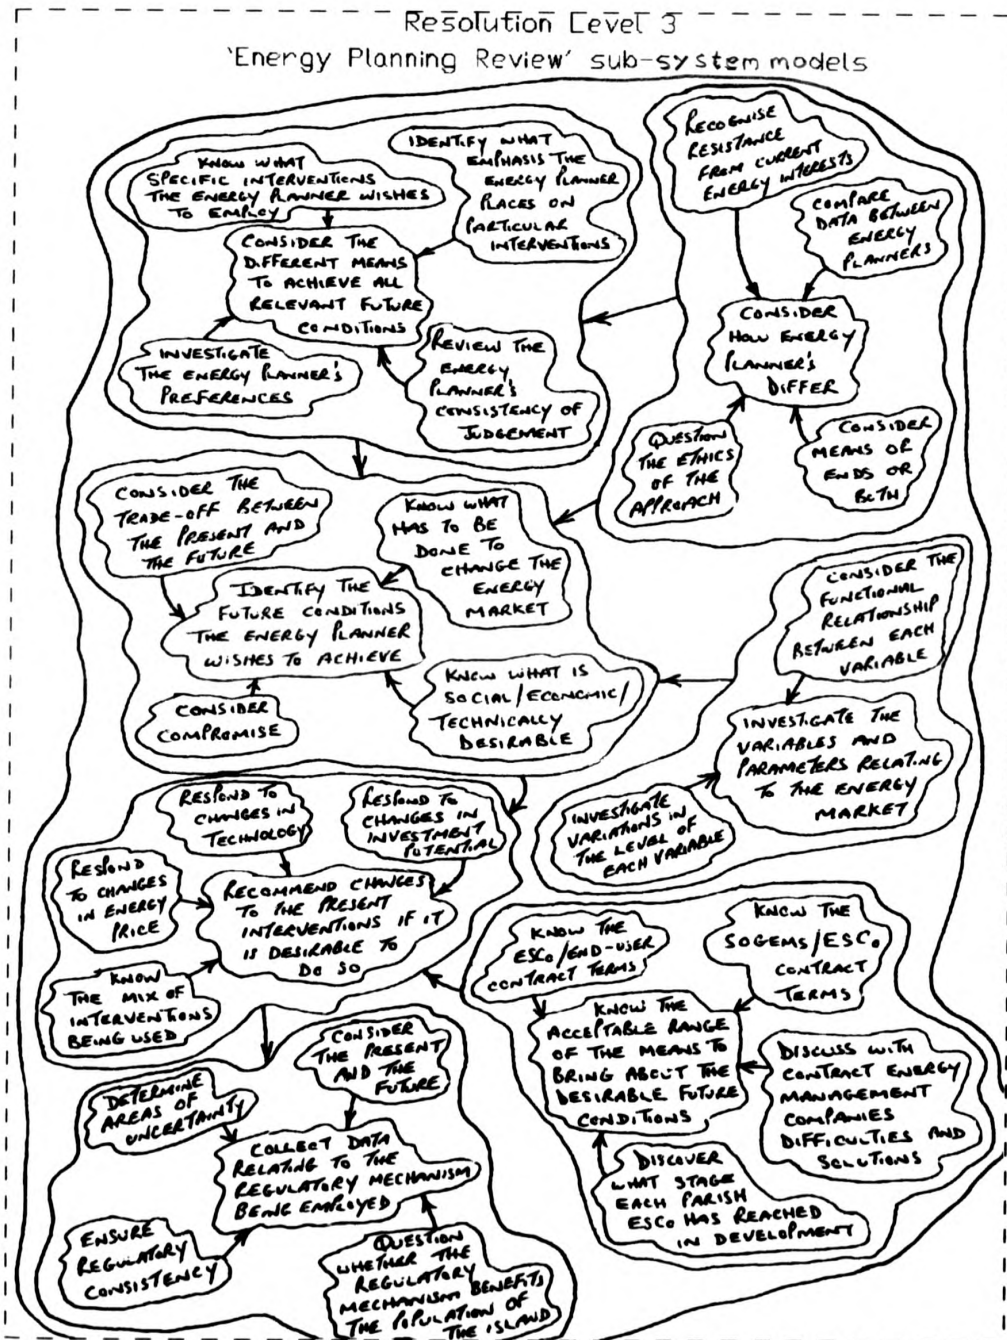 Resolution Level 3
'Energy Planning Review' sub-system models
KNOW WHAT
SPECIFIC INTERVENTIONS
THE ENERGY PLANNER WISHES
TO EMPLOY
IDENTIFY WHAT
EMPHASIS THE
ENERGY PLANNER
PLACES ON
PARTICULAR
INTERVENTIONS
CONSIDER THE
DIFFERENT MEANS
TO ACHIEVE ALL
RELEVANT FUTURE
CONDITIONS
INVESTIGATE
THE ENERGY PLANNER'S
PREFERENCES
REVIEW THE
ENERGY
PLANNER'S
CONSISTENCY OF
JUDGEMENT
RECOGNISE
RESISTANCE
FROM CURRENT
ENERGY INTERESTS
COMPARE
DATA BETWEEN
ENERGY
PLANNERS
CONSIDER
HOW ENERGY
PLANNER'S
DIFFER
QUESTION
THE ETHICS
OF THE
APPROACH
CONSIDER
MEANS OR
ENDS OR
BOTH
CONSIDER THE
TRADE-OFF BETWEEN
THE PRESENT AND
THE FUTURE
KNOW WHAT
HAS TO BE
DONE TO
CHANGE THE
ENERGY
MARKET
IDENTIFY THE
FUTURE CONDITIONS
THE ENERGY PLANNER
WISHES TO ACHIEVE
CONSIDER
COMPROMISE
KNOW WHAT IS
SOCIAL/ECONOMIC/
TECHNICALLY
DESIRABLE
CONSIDER THE
FUNCTIONAL
RELATIONSHIP
BETWEEN EACH
VARIABLE
INVESTIGATE THE
VARIABLES AND
PARAMETERS RELATING
TO THE ENERGY
MARKET
INVESTIGATE
VARIATIONS IN
THE LEVEL OF
EACH VARIABLE
RESPOND TO
CHANGES IN
TECHNOLOGY
RESPOND TO
CHANGES IN
INVESTMENT
POTENTIAL
RESPOND
TO CHANGES
IN ENERGY
PRICE
RECOMMEND CHANGES
TO THE PRESENT
INTERVENTIONS IF IT
IS DESIRABLE TO
DO SO
KNOW
THE MIX OF
INTERVENTIONS
BEING USED
KNOW THE
ESCo/END-USER
CONTRACT TERMS
KNOW THE
SOGEMS/ESCo
CONTRACT
TERMS
KNOW THE
ACCEPTABLE RANGE
OF THE MEANS TO
BRING ABOUT THE
DESIRABLE FUTURE
CONDITIONS
DISCUSS WITH
CONTRACT ENERGY
MANAGEMENT
COMPANIES
DIFFICULTIES AND
SOLUTIONS
DISCOVER
WHAT STAGE
EACH PARISH
ESCo HAS REACHED
IN DEVELOPMENT
DETERMINE
AREAS OF
UNCERTAINTY
CONSIDER
THE PRESENT
AND THE
FUTURE
COLLECT DATA
RELATING TO THE
REGULATORY MECHANISM
BEING EMPLOYED
ENSURE
REGULATORY
CONSISTENCY
QUESTION
WHETHER THE
REGULATORY
MECHANISM BENEFITS
THE POPULATION OF
THE ISLAND